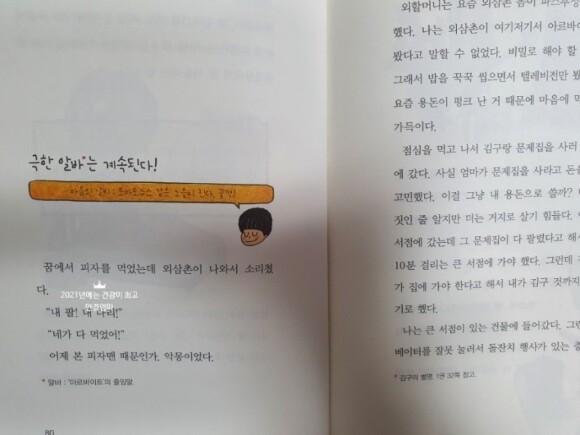 극한 알바*는 계속된다!
꿈에서 피자를 먹었는데 외삼촌이 나와서 소리쳤
다.
"내 팔! 내 다리!"
2021년에는 건강이 최고
"네가 다 먹었어!"
어제 본 피자맨 때문인가. 악몽이었다.
* 알바 : '아르바이트'의 줄임말.
80
외할머니는 요즘 외삼촌 몸이
했다. 나는 외삼촌이 여기저기서 아르바
봤다고 말할 수 없었다. 비밀로 해야 할
그래서 밥을 꾹꾹 씹으면서 텔레비전만 봤
요즘 용돈이 펑크 난 거 때문에 마음에 먹
가득이다.
점심을 먹고 나서 김구랑 문제집을 사러
에 갔다. 사실 엄마가 문제집을 사라고 돈을
고민했다. 이걸 그냥 내 용돈으로 쓸까?
짓인 줄 알지만 더는 거지로 살기 힘들다.
서점에 갔는데 그 문제집이 다 팔렸다고 해서
10분 걸리는 큰 서점에 가야 했다. 그런데
가 집에 가야 한다고 해서 내가 김구 것까지
기로 했다.
나는 큰 서점이 있는 건물에 들어갔다. 그런
베이터를 잘못 눌러서 돌잔치 행사가 있는 층
* 김구의 별명. 1권 32쪽 참고.